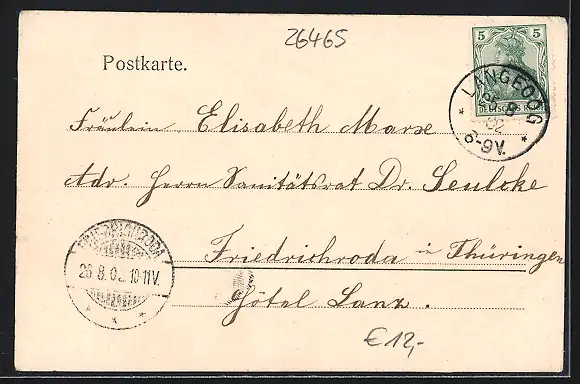 26465
Postkarte.
5 5
DEUTSCHES REICH
* LANGEOOG *
8
02
8-9V.
Fräulein Elisabeth Marse
Adr. Herrn Sanitätsrat Dr.
Friedrichroda in Thüringen
Hôtel Lanz.
FRIEDRICHRODA
26.8.02. 10-11V.
* * *
€ 12,-